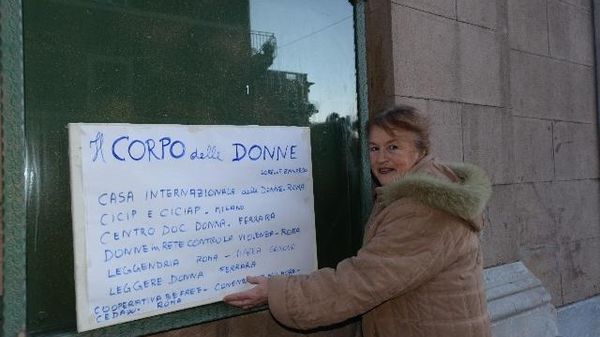 Il CORPO delle DONNE
CASA INTERNAZIONALE delle DONNE. ROMA
CICIP E CICIAP - MILANO
CENTRO DOC DONNA - FERRARA
DONNE in RETE CONTRO LA VIOLENZA - ROMA
LEGGENDRIA ROMA -
LEGGERE DONNA FERRARA
COOPERATIVA BE FREE -
CEDAW - ROMA